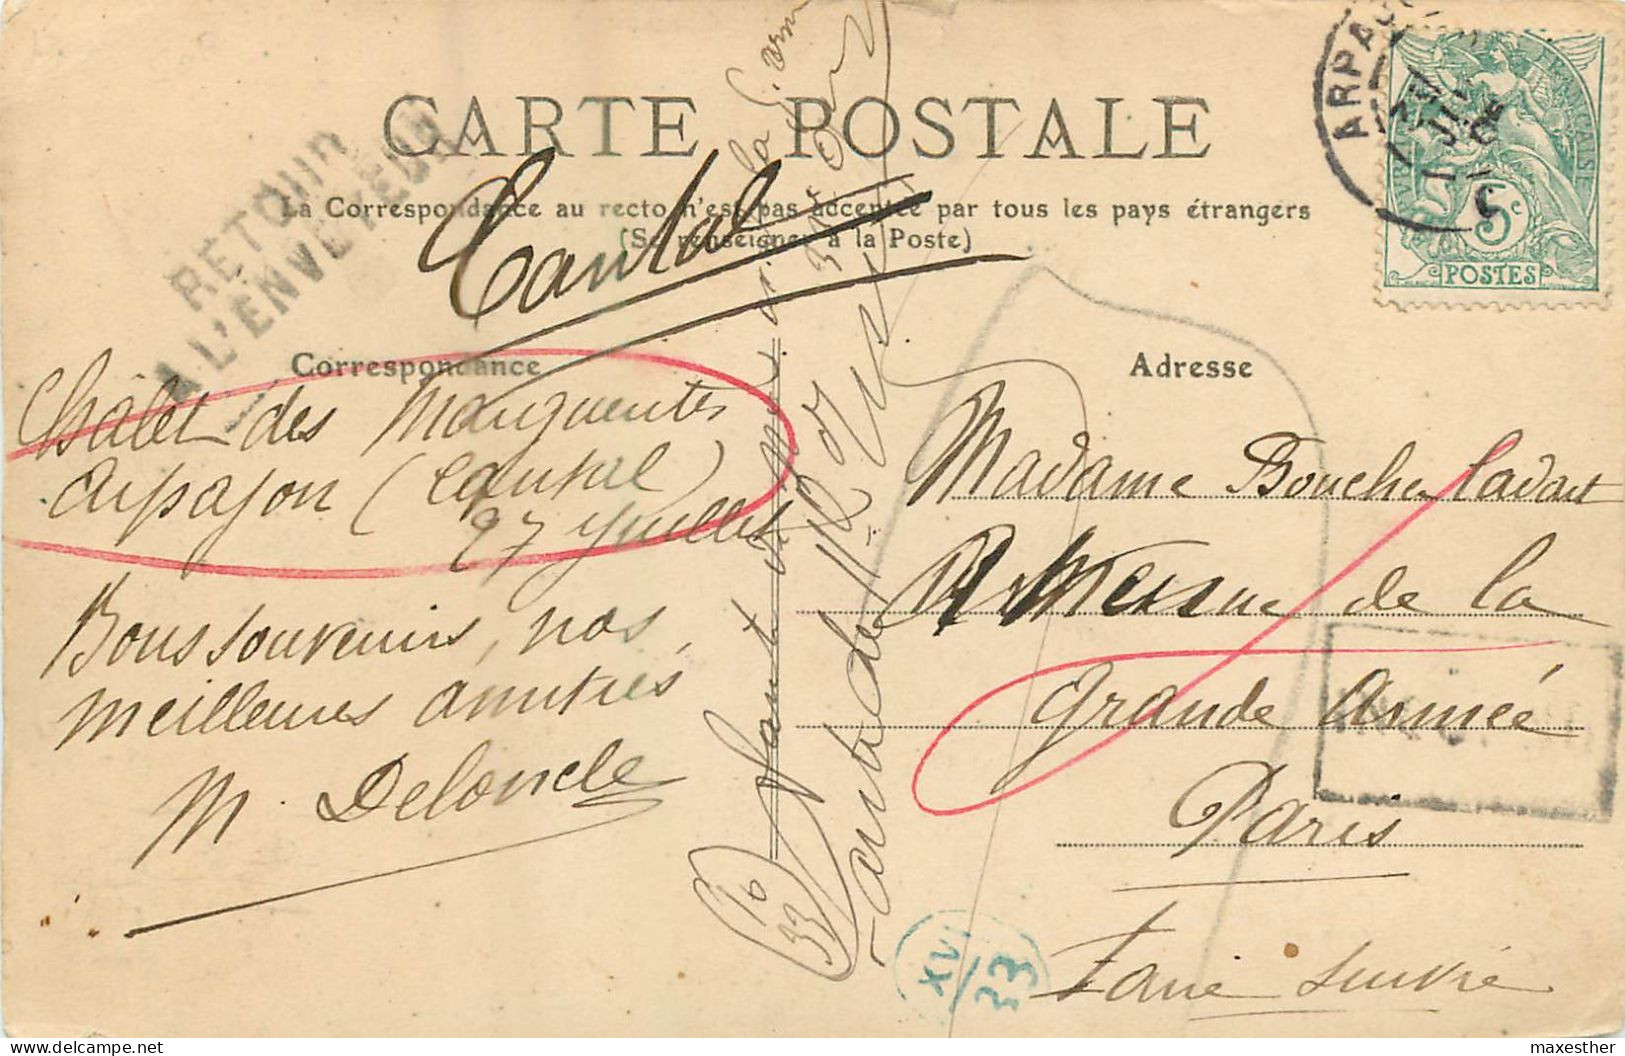 CARTE POSTALE
La Correspondance au recto n'est pas acceptée par tous les pays étrangers
(Se renseigner à la Poste)
RETOUR
A L'ENVOYEUR
Cantal
ARPAJON
POSTES
5c
Correspondance
Adresse
Châlet des Marguerites
Arpajon (Cantal)
27 Juillet
Bons souvenirs, nos
meilleures amitiés
M. Deloncle
Madame Boucher Cadart
Avenue de la
Grande Armée
Paris
Faire suivre
16
33
XVI
33
maxesther